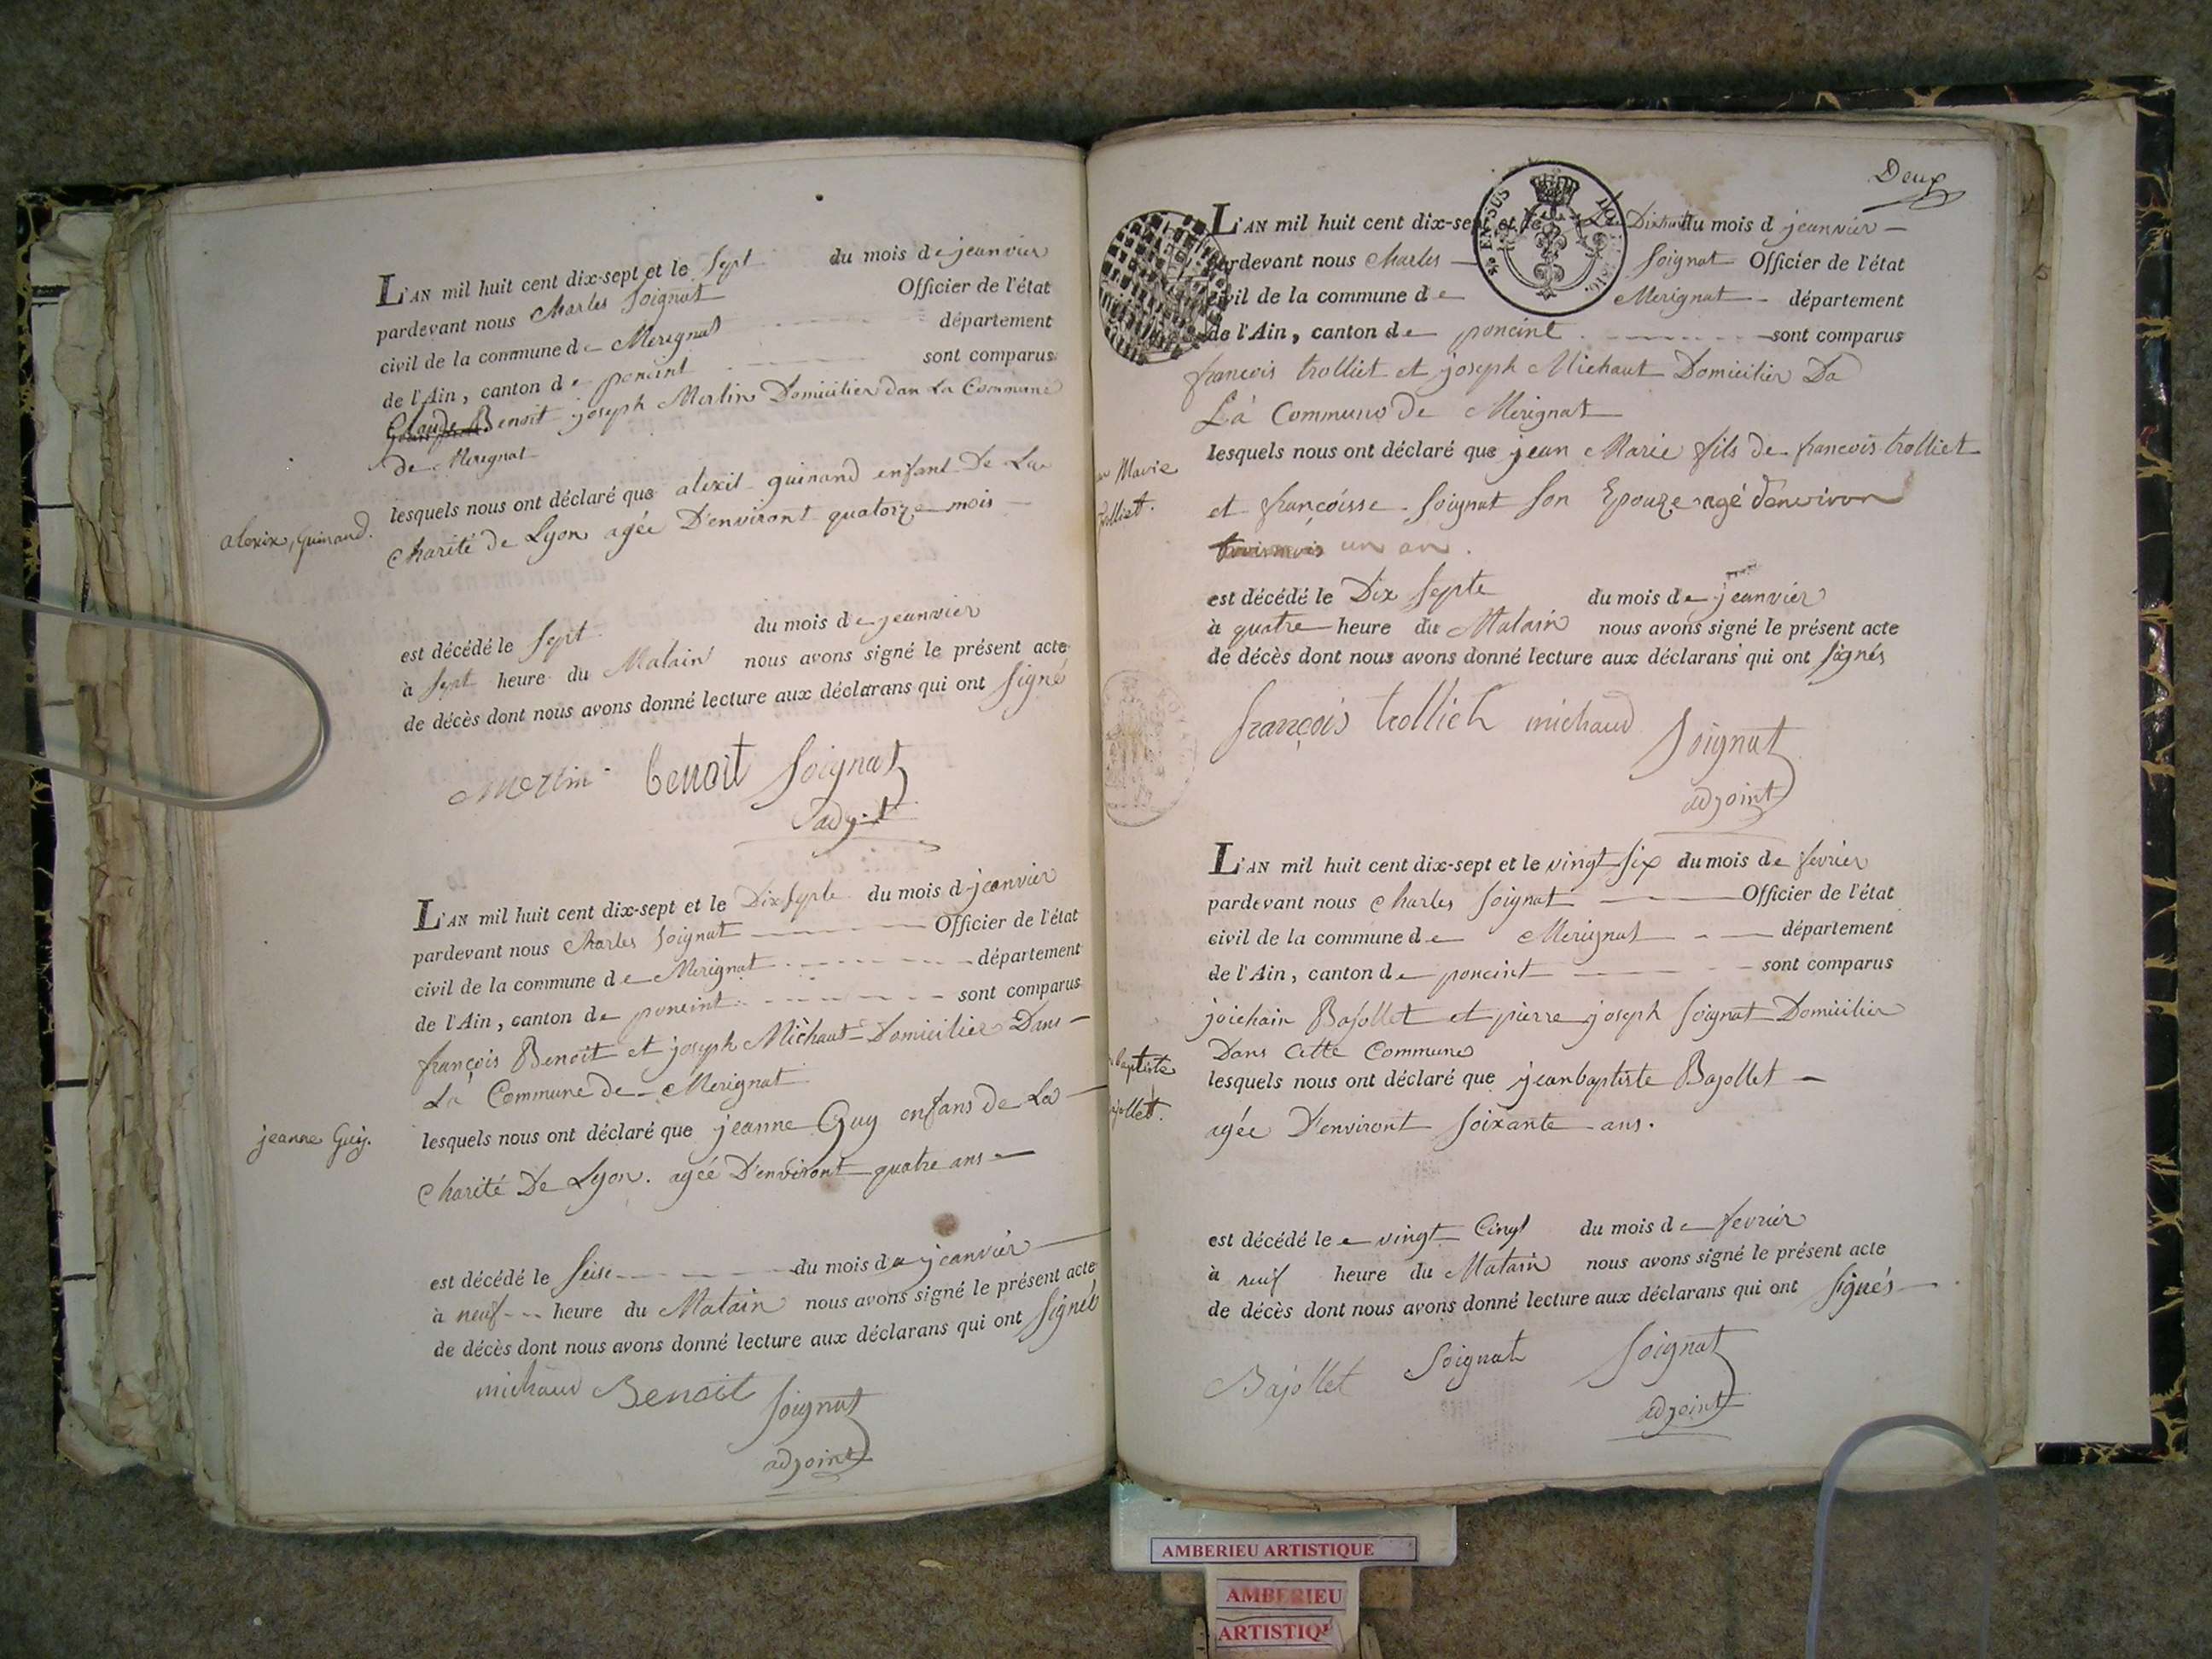 L'AN mil huit cent dix-sept et le Sept du mois de jeanvier
pardevant nous Charles Soignat Officier de l'état
civil de la commune de Merignat département
de l'Ain, canton de poncint sont comparus
Claude Benoit joseph Merlin Domicilier dan La Commune
de Merignat
lesquels nous ont déclaré que alexit guinand enfant De La
alexix, guinand.
Charité de Lyon agée D'environt quatorze mois
est décédé le Sept du mois de jeanvier
à Sept heure du Matain nous avons signé le présent acte
de décès dont nous avons donné lecture aux déclarans qui ont Signé
Merlin benoit Soignat
adjt
L'AN mil huit cent dix-sept et le Dix Septe du mois d jeanvier
pardevant nous Charles Soignat Officier de l'état
civil de la commune de Merignat département
de l'Ain, canton de poncint sont comparus
françois Benoit et joseph Michaut Domicilier Dans
La Commune de Merignat
jeanne Guy.
lesquels nous ont déclaré que jeanne Guy enfans de La
Charité De Lyon. agée D'environt quatre ans
est décédé le Seise du mois de jeanvier
à neuf heure du Matain nous avons signé le présent acte
de décès dont nous avons donné lecture aux déclarans qui ont Signés
michaud Benoit Soignat
adjoint
Deux
L'AN mil huit cent dix-sept et le Le Dixhuit du mois d jeanvier
pardevant nous Charles Soignat Officier de l'état
civil de la commune de Merignat département
de l'Ain, canton de poncint sont comparus
francois trolliet et joseph Michaut Domicilier Da
La Commune de Merignat
lesquels nous ont déclaré que jean Marie fils de francois trolliet
Marie
trolliet.
et françoisse Soignat Son Epouze agé d'environ
un an.
est décédé le Dix Septe du mois de jeanvier
à quatre heure du Matain nous avons signé le présent acte
de décès dont nous avons donné lecture aux déclarans qui ont Signés
françois trollieh michaud Soignat
adjoint
L'AN mil huit cent dix-sept et le vingt Six du mois de fevrier
pardevant nous Charles Soignat Officier de l'état
civil de la commune de Merignat département
de l'Ain, canton de poncint sont comparus
joichain Bajollet et pierre joseph Soignat Domicilier
Dans Cette Commune
baptiste
lesquels nous ont déclaré que jeanbaptiste Bajollet
jollet.
agée D'environt Soixante ans.
est décédé le vingt Cinqt du mois de fevrier
à neuf heure du Matain nous avons signé le présent acte
de décès dont nous avons donné lecture aux déclarans qui ont Signés
Bajollet Soignat Soignat
adjoint
AMBERIEU ARTISTIQUE
AMBERIEU
ARTISTIQU